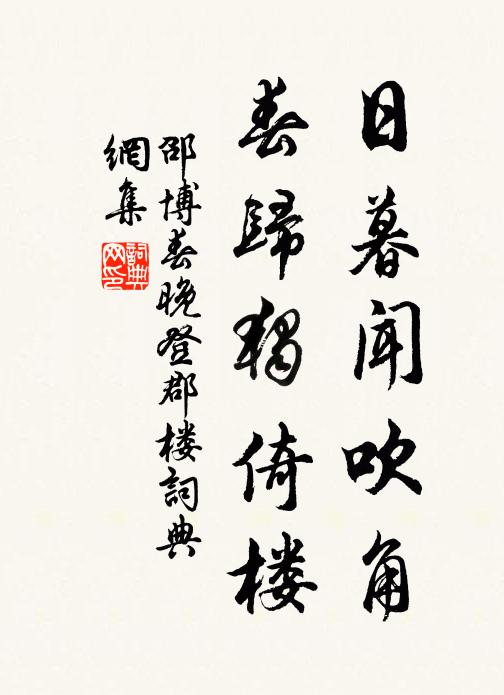 日暮闻吹角
春歸獨倚楼
邵博春晚登郡楼詞典
網集
詞典网印